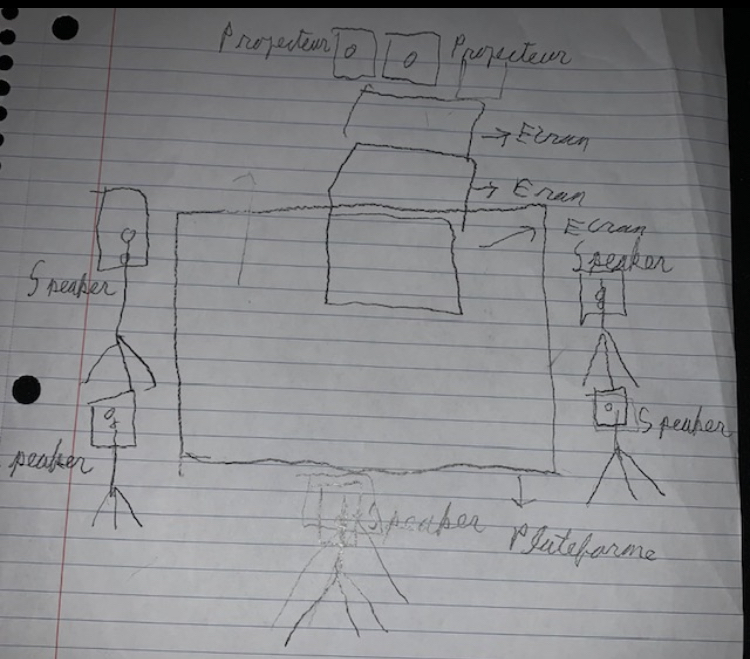 Projecteur
Projecteur
Ecran
Eran
Ecran
Speaker
Speaker
peaker
Speaker
Speaker
Plateforme